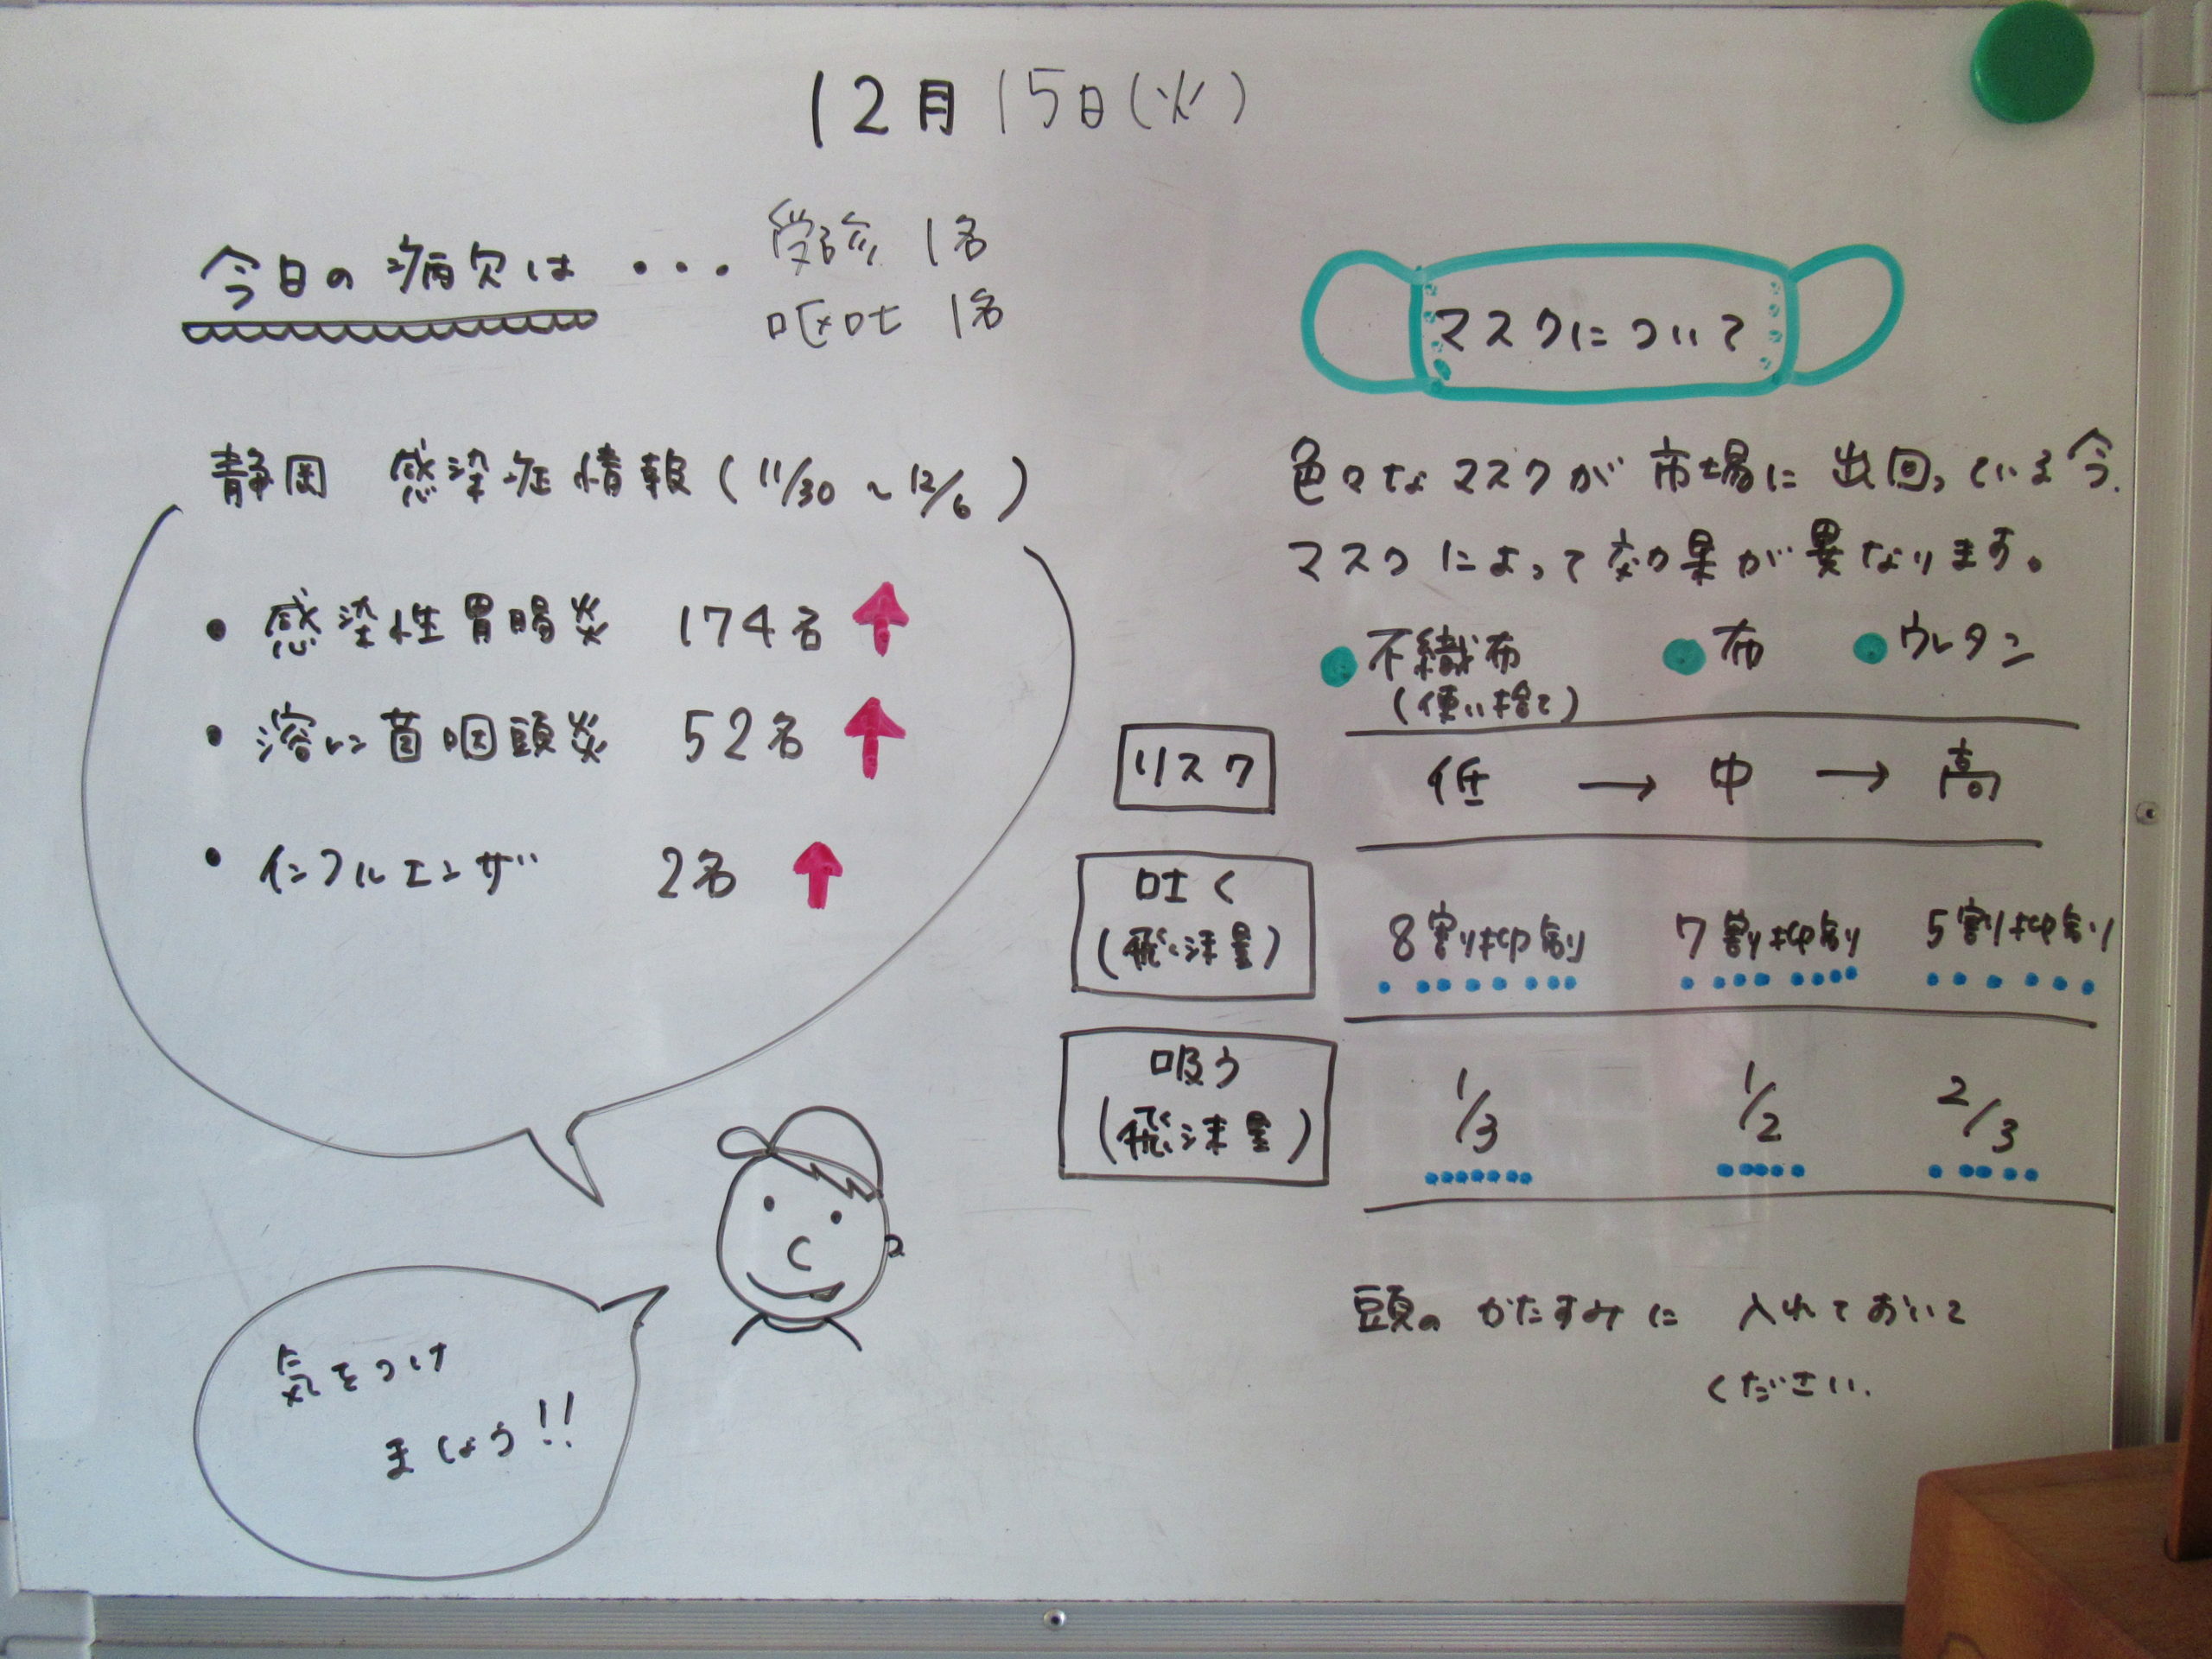 12月15日(火)
今日の病欠は・・・ 受診 1名
嘔吐 1名
静岡 感染症情報(11/30～12/6)
・感染性胃腸炎 174名 ↑
・溶レン菌咽頭炎 52名 ↑
・インフルエンザ 2名 ↑
気をつけ
ましょう!!
マスクについて
色々なマスクが市場に出回っている今、
マスクによって効果が異なります。
●不織布 ●布 ●ウレタン
(使い捨て)
リスク 低 → 中 → 高
吐く
(飛沫量) 8割り抑制 7割り抑制 5割り抑制
吸う
(飛沫量) 1/3 1/2 2/3
頭のかたすみに 入れておいて
ください.